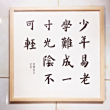 少年易老
學難成一
寸光陰不
可輕